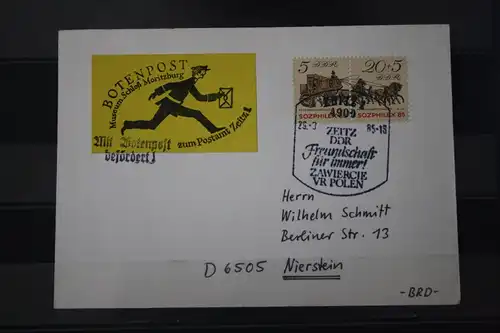 BOTENPOST
Museum Schloß Moritzburg
zum Postamt Zeitz 1
Mit Botenpost
befördert!
5 DDR
20+5
DDR
SOZPHILEX 85 SOZPHILEX 85
ZEITZ 1
4900
85-18
ZEITZ
DDR
Freundschaft
für immer!
ZAWIERCIE
VR POLEN
Herrn
Wilhelm Schmitt
Berliner Str. 13
D 6505 Nierstein
-BRD-